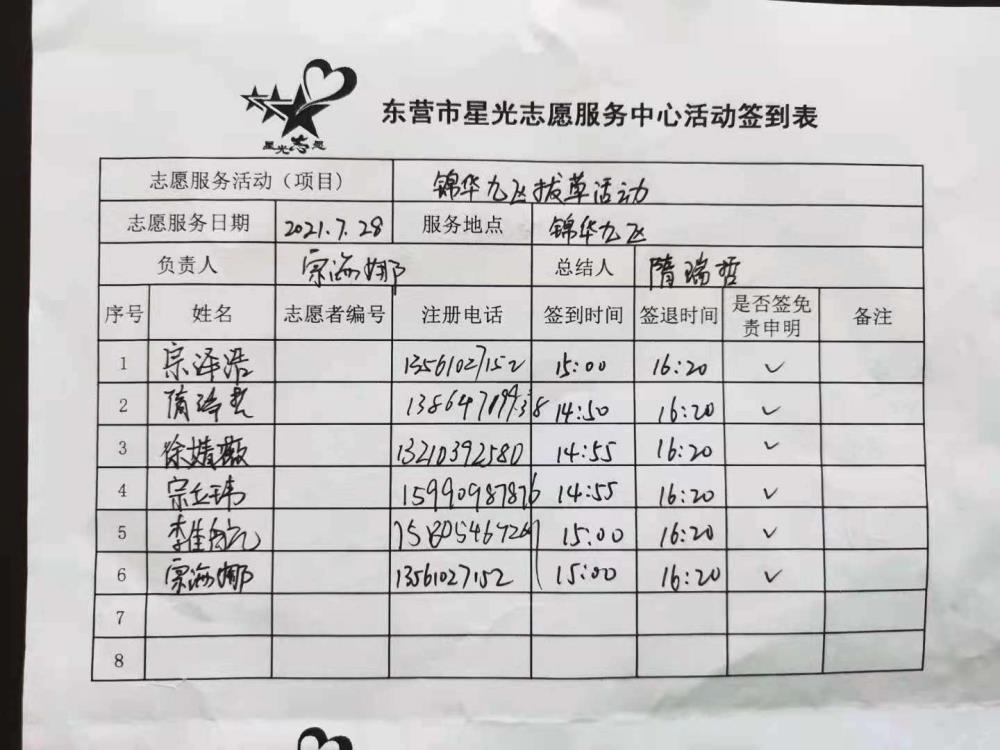 星光志愿
东营市星光志愿服务中心活动签到表
志愿服务活动（项目） 锦华九区拔草活动
志愿服务日期 2021.7.28 服务地点 锦华九区
负责人 宗海娜 总结人 隋瑞哲
序号 姓名 志愿者编号 注册电话 签到时间 签退时间 是否签免责申明 备注
1 宗泽浩 13561027152 15:00 16:20 ✓
2 14:50 16:20 ✓
3 徐婧薇 13210392580 14:55 16:20 ✓
4 15990987876 14:55 16:20 ✓
5 15:00 16:20 ✓
6 宗海娜 13561027152 15:00 16:20 ✓
7
8